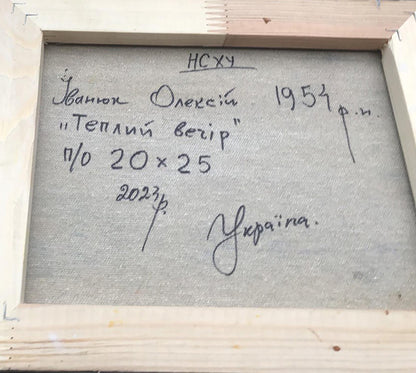 НСХУ
Іванюк Олексій 1954 р.н.
„Теплий вечір"
п/о 20 x 25
2023 р.
Україна.